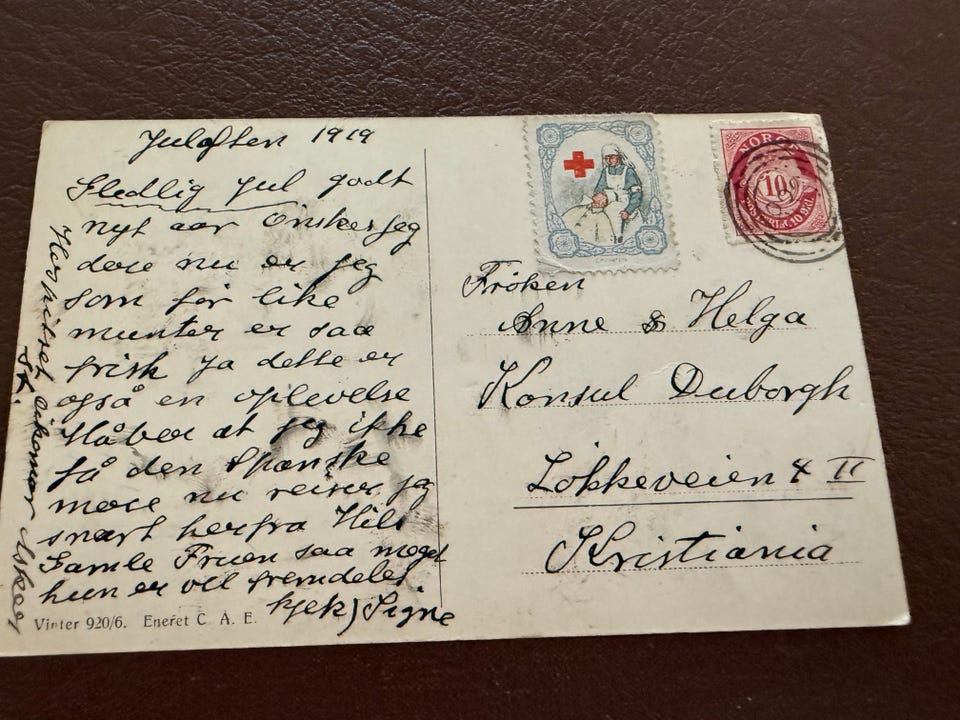 Julaften 1919
Gledlig Jul godt
nyt aar Önsker jeg
dere nu er jeg
som før like
munter er saa
frisk ja dette er
også en oplevelse
Håber at jeg ikke
få den Spanske
mere nu reiser jeg
snart herfra Hils
Gamle Fruen saa meget
hun er vel fremdeles
kjek) Signe
Hospitset Asker
St.
Vinter 920/6. Eneret C. A. E.
NORGE
10
POSTFRIM. 10 ØRE
Fröken
Anne & Helga
Konsul Duborgh
Løkkeveien 4 II
Kristiania